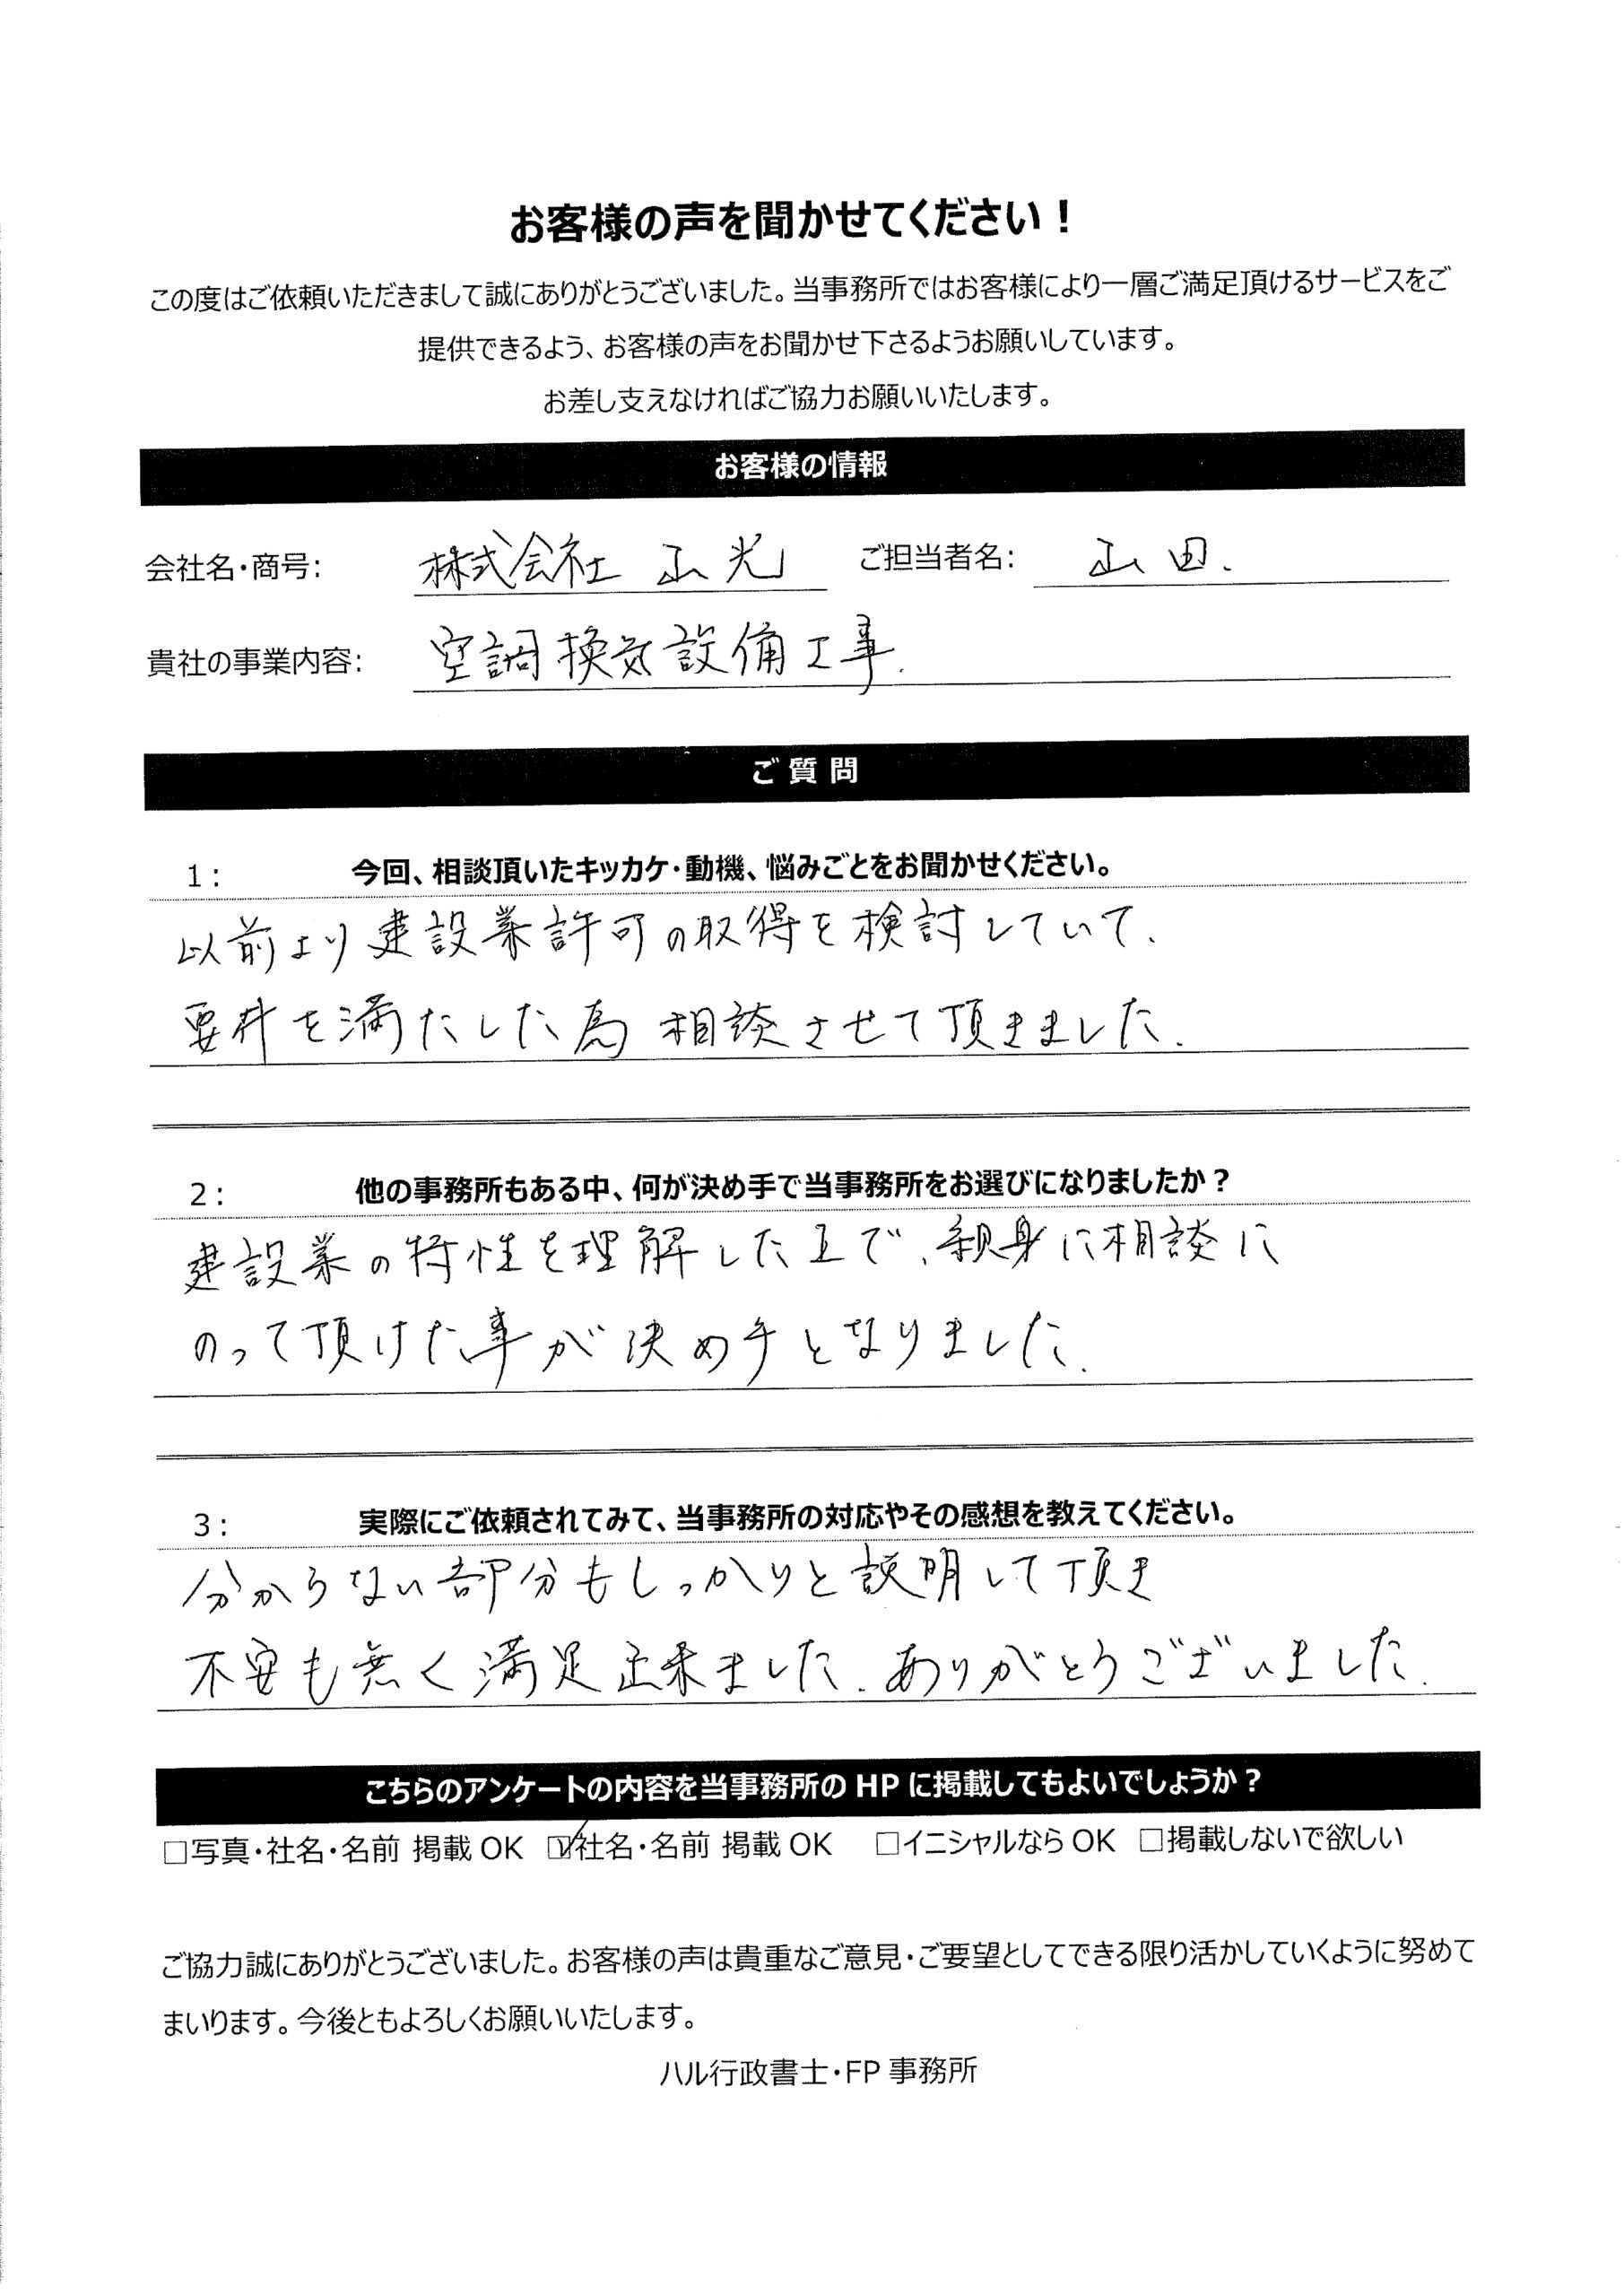 お客様の声を聞かせてください！
この度はご依頼いただきまして誠にありがとうございました。当事務所ではお客様により一層ご満足頂けるサービスをご
提供できるよう、お客様の声をお聞かせ下さるようお願いしています。
お差し支えなければご協力お願いいたします。
お客様の情報
会社名・商号: 株式会社 山光 ご担当者名: 山田.
貴社の事業内容: 空調換気設備工事.
ご 質 問
1: 今回、相談頂いたキッカケ・動機、悩みごとをお聞かせください。
以前より建設業許可の取得を検討していて、
要件を満たした為 相談させて頂きました.
2: 他の事務所もある中、何が決め手で当事務所をお選びになりましたか？
建設業の特性を理解した上で、親身に相談に
のって頂けた事が決め手となりました.
3: 実際にご依頼されてみて、当事務所の対応やその感想を教えてください。
分からない部分もしっかりと説明して頂き
不安も無く満足出来ました. ありがとうございました.
こちらのアンケートの内容を当事務所の HP に掲載してもよいでしょうか？
□写真・社名・名前 掲載 OK ☑社名・名前 掲載 OK □イニシャルなら OK □掲載しないで欲しい
ご協力誠にありがとうございました。お客様の声は貴重なご意見・ご要望としてできる限り活かしていくように努めて
まいります。今後ともよろしくお願いいたします。
ハル行政書士・FP 事務所